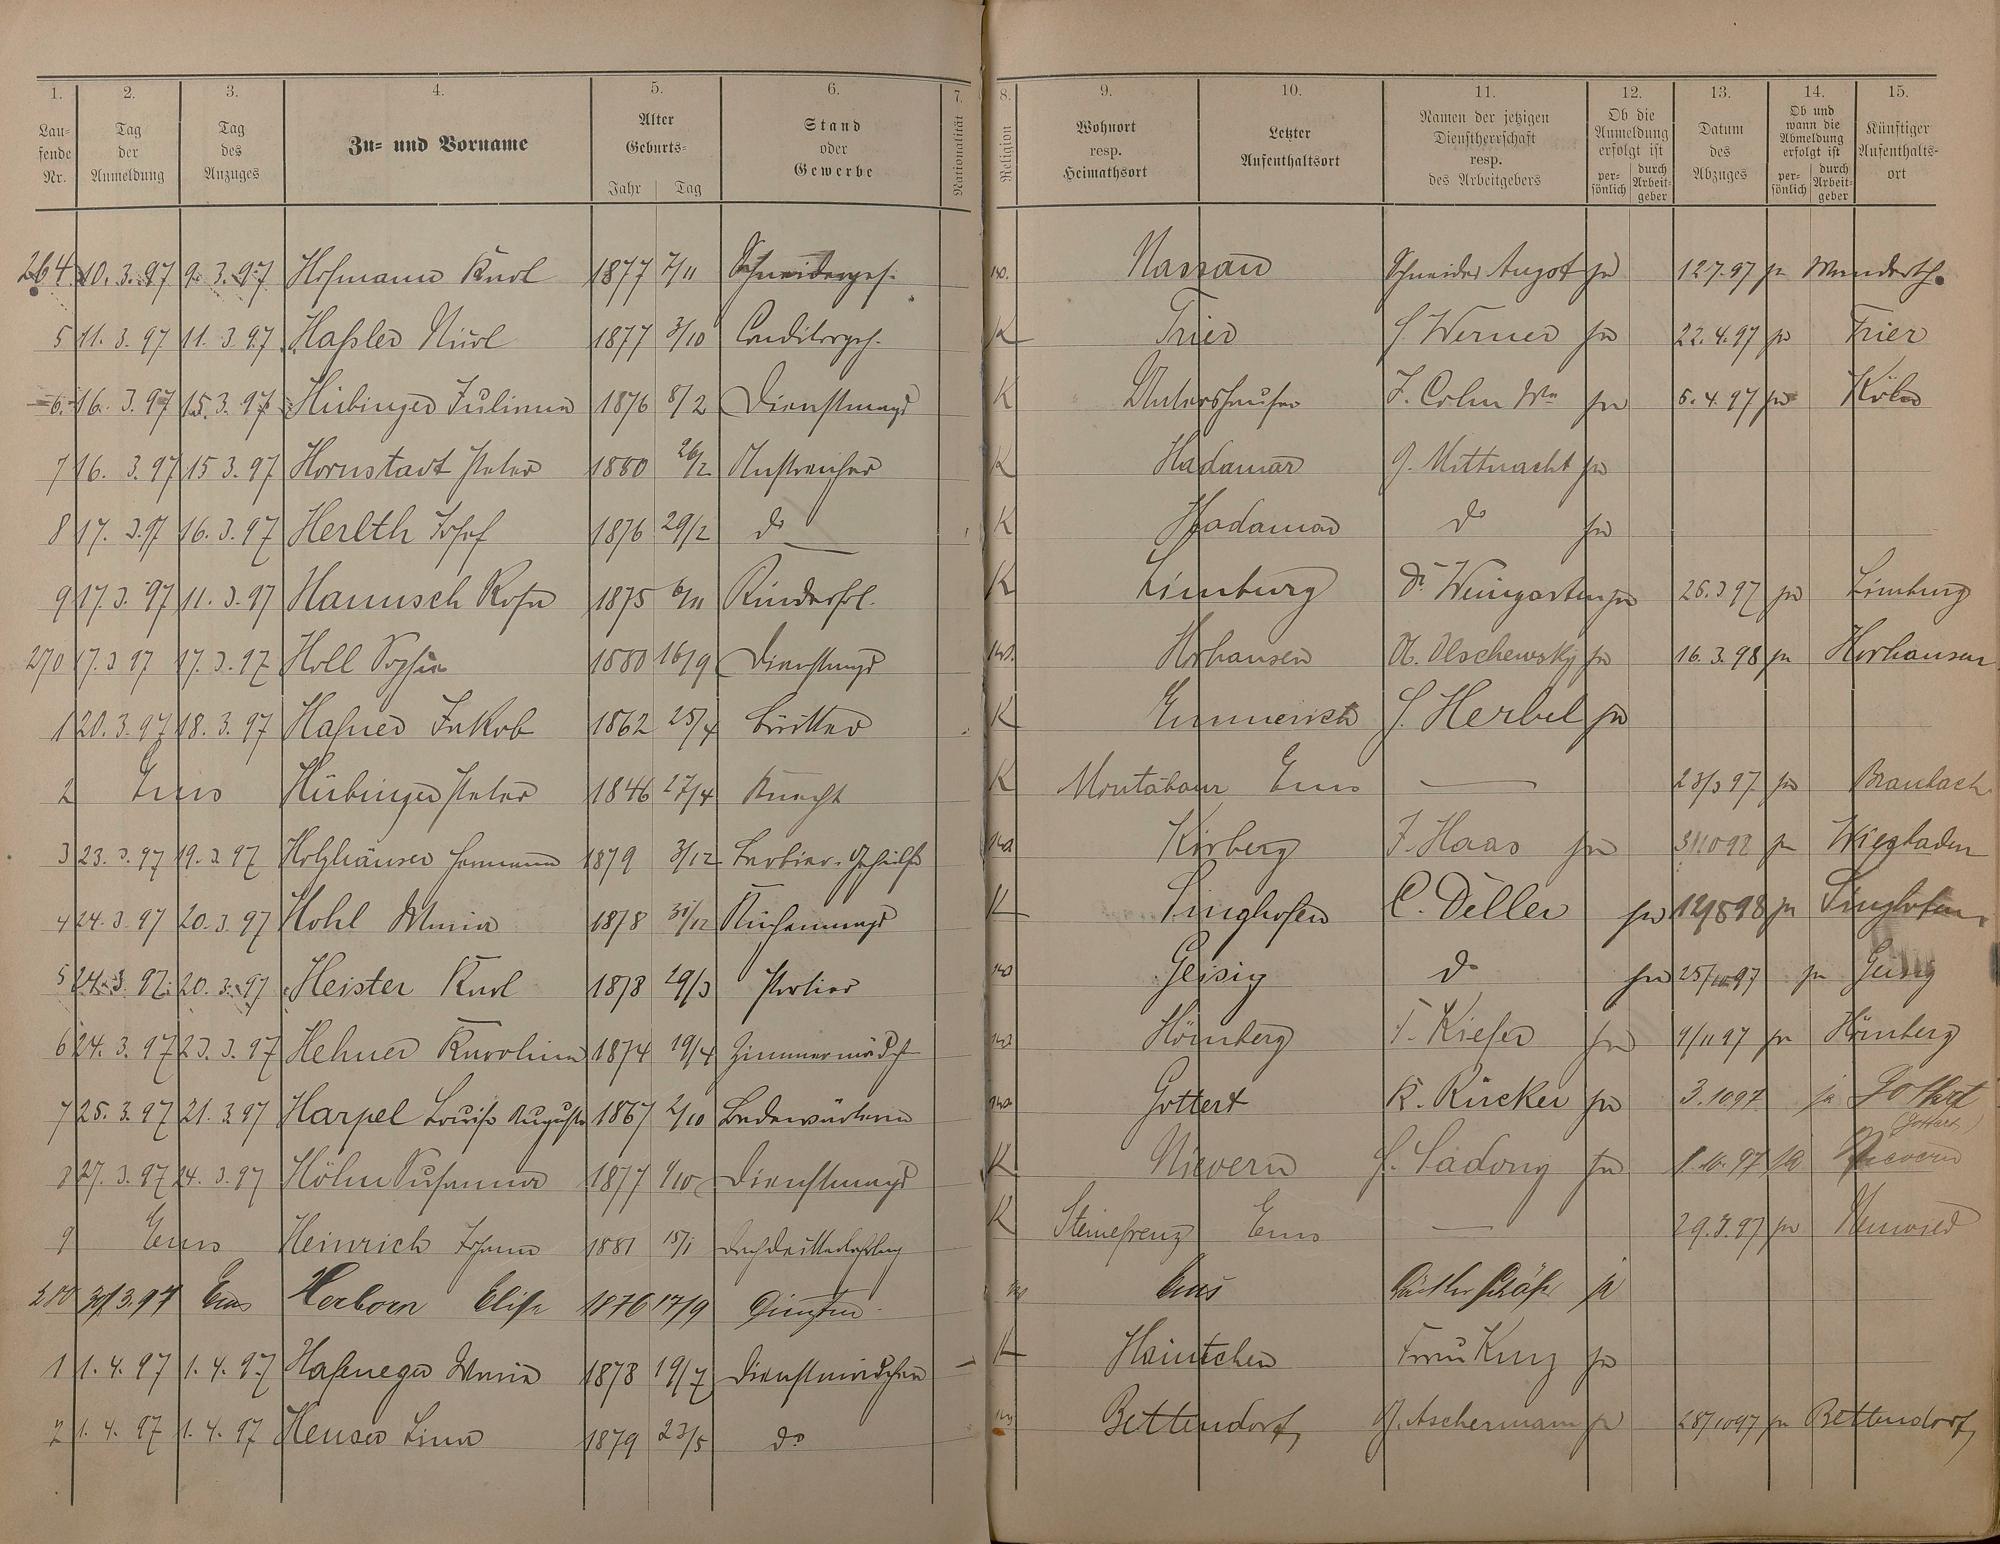 1. 2. 3. 4. 5. 6. 7. 8. 9. 10. 11. 12. 13. 14. 15.
Lau-fende Nr. Tag der Anmeldung Tag des Anzuges Zu- und Vorname Alter Geburts- Jahr Tag Stand oder Gewerbe Nationalität Religion Wohnort resp. Heimathsort Letzter Aufenthaltsort Namen der jetzigen Dienstherrschaft resp. des Arbeitgebers Ob die Anmeldung erfolgt ist per-sönlich durch Arbeit-geber Datum des Abzuges Ob und wann die Abmeldung erfolgt ist per-sönlich durch Arbeit-geber Künftiger Aufenthalts-ort
264 10. 3. 97 9. 3. 97 Hofmann Karl 1877 7/11 Schneiderges. Nassau Schneider August ja 12.7.97 ja
5 11. 3. 97 11. 3. 97 1877 3/10 Conditorges. K Trier Werner ja 22.4.97 ja Trier
6. 16. 3. 97 15. 3. 97 Hübinger Juliana 1876 8/2 Dienstmagd K ja 5.4.97 ja Köln
7 16. 3. 97 15 3. 97 Peter 1880 26/2 Anstreicher K Hadamar Mittnacht ja
8 17. 3. 97 16. 3. 97 Herlth Josef 1876 29/2 do K Hadamar do ja
9 17. 3. 97 11. 3. 97 Hanusch Rosa 1875 6/11 K Limburg Dr. Weingarten ja 26.3.97 ja Limburg
270 17. 3 97 17. 3. 97 Holl Sophia 1880 16/9 Dienstmagd Horhausen Olschewsky ja 16.3.98 ja Horhausen
1 20. 3. 97 18. 3. 97 Hafner Jakob 1862 25/4 K Emmerich Herbel ja
2 Ems Hübinger Peter 1846 27/4 Knecht K Montabaur Ems — 23/3 97 ja Braubach
3 23. 3. 97 19. 3. 97 Holzhäuser Hermann 1879 3/12 Barbier-Gehülfe Kirberg J. Haas ja ja Wiesbaden
4 24. 3. 97 20. 3. 97 Hohl Maria 1878 31/12 Küchenmagd K Singhofen C. Deller ja ja Singhofen
5 24. 3. 97. 20. 3. 97 Heister Karl 1878 29/3 Portier Geisig do ja 25/10 97 ja Geisig
6 24. 3. 97 23. 3. 97 Hehner Karolina 1874 19/4 Zimmermädch Hömberg Kiefer ja 9/11 97 ja Hömberg
7 25. 3. 97 21. 3 97 Harpel Louise Auguste 1867 2/10 Badewärterin Gottert K. Rücker ja 3.10 97 ja
8 27. 3. 97 24. 3. 97 Höhn Susanna 1877 1/10 Dienstmagd K Nievern ja 1.10.97 ja Nievern
9 Ems Heinrich Johann 1881 15/1 K Steinefrenz Ems — 29.3.97 ja Neuwied
280 30/3.97 Ems Herborn Elise 1876 17/9 Ems ja
1 1. 4. 97 1. 4. 97 Maria 1878 19/7 Dienstmädchen K Haintchen Frau Kurz ja
2 1. 4. 97 1. 4. 97 Heuser Lina 1879 23/5 do Bettendorf Aschermann ja 28/10 97 ja Bettendorf